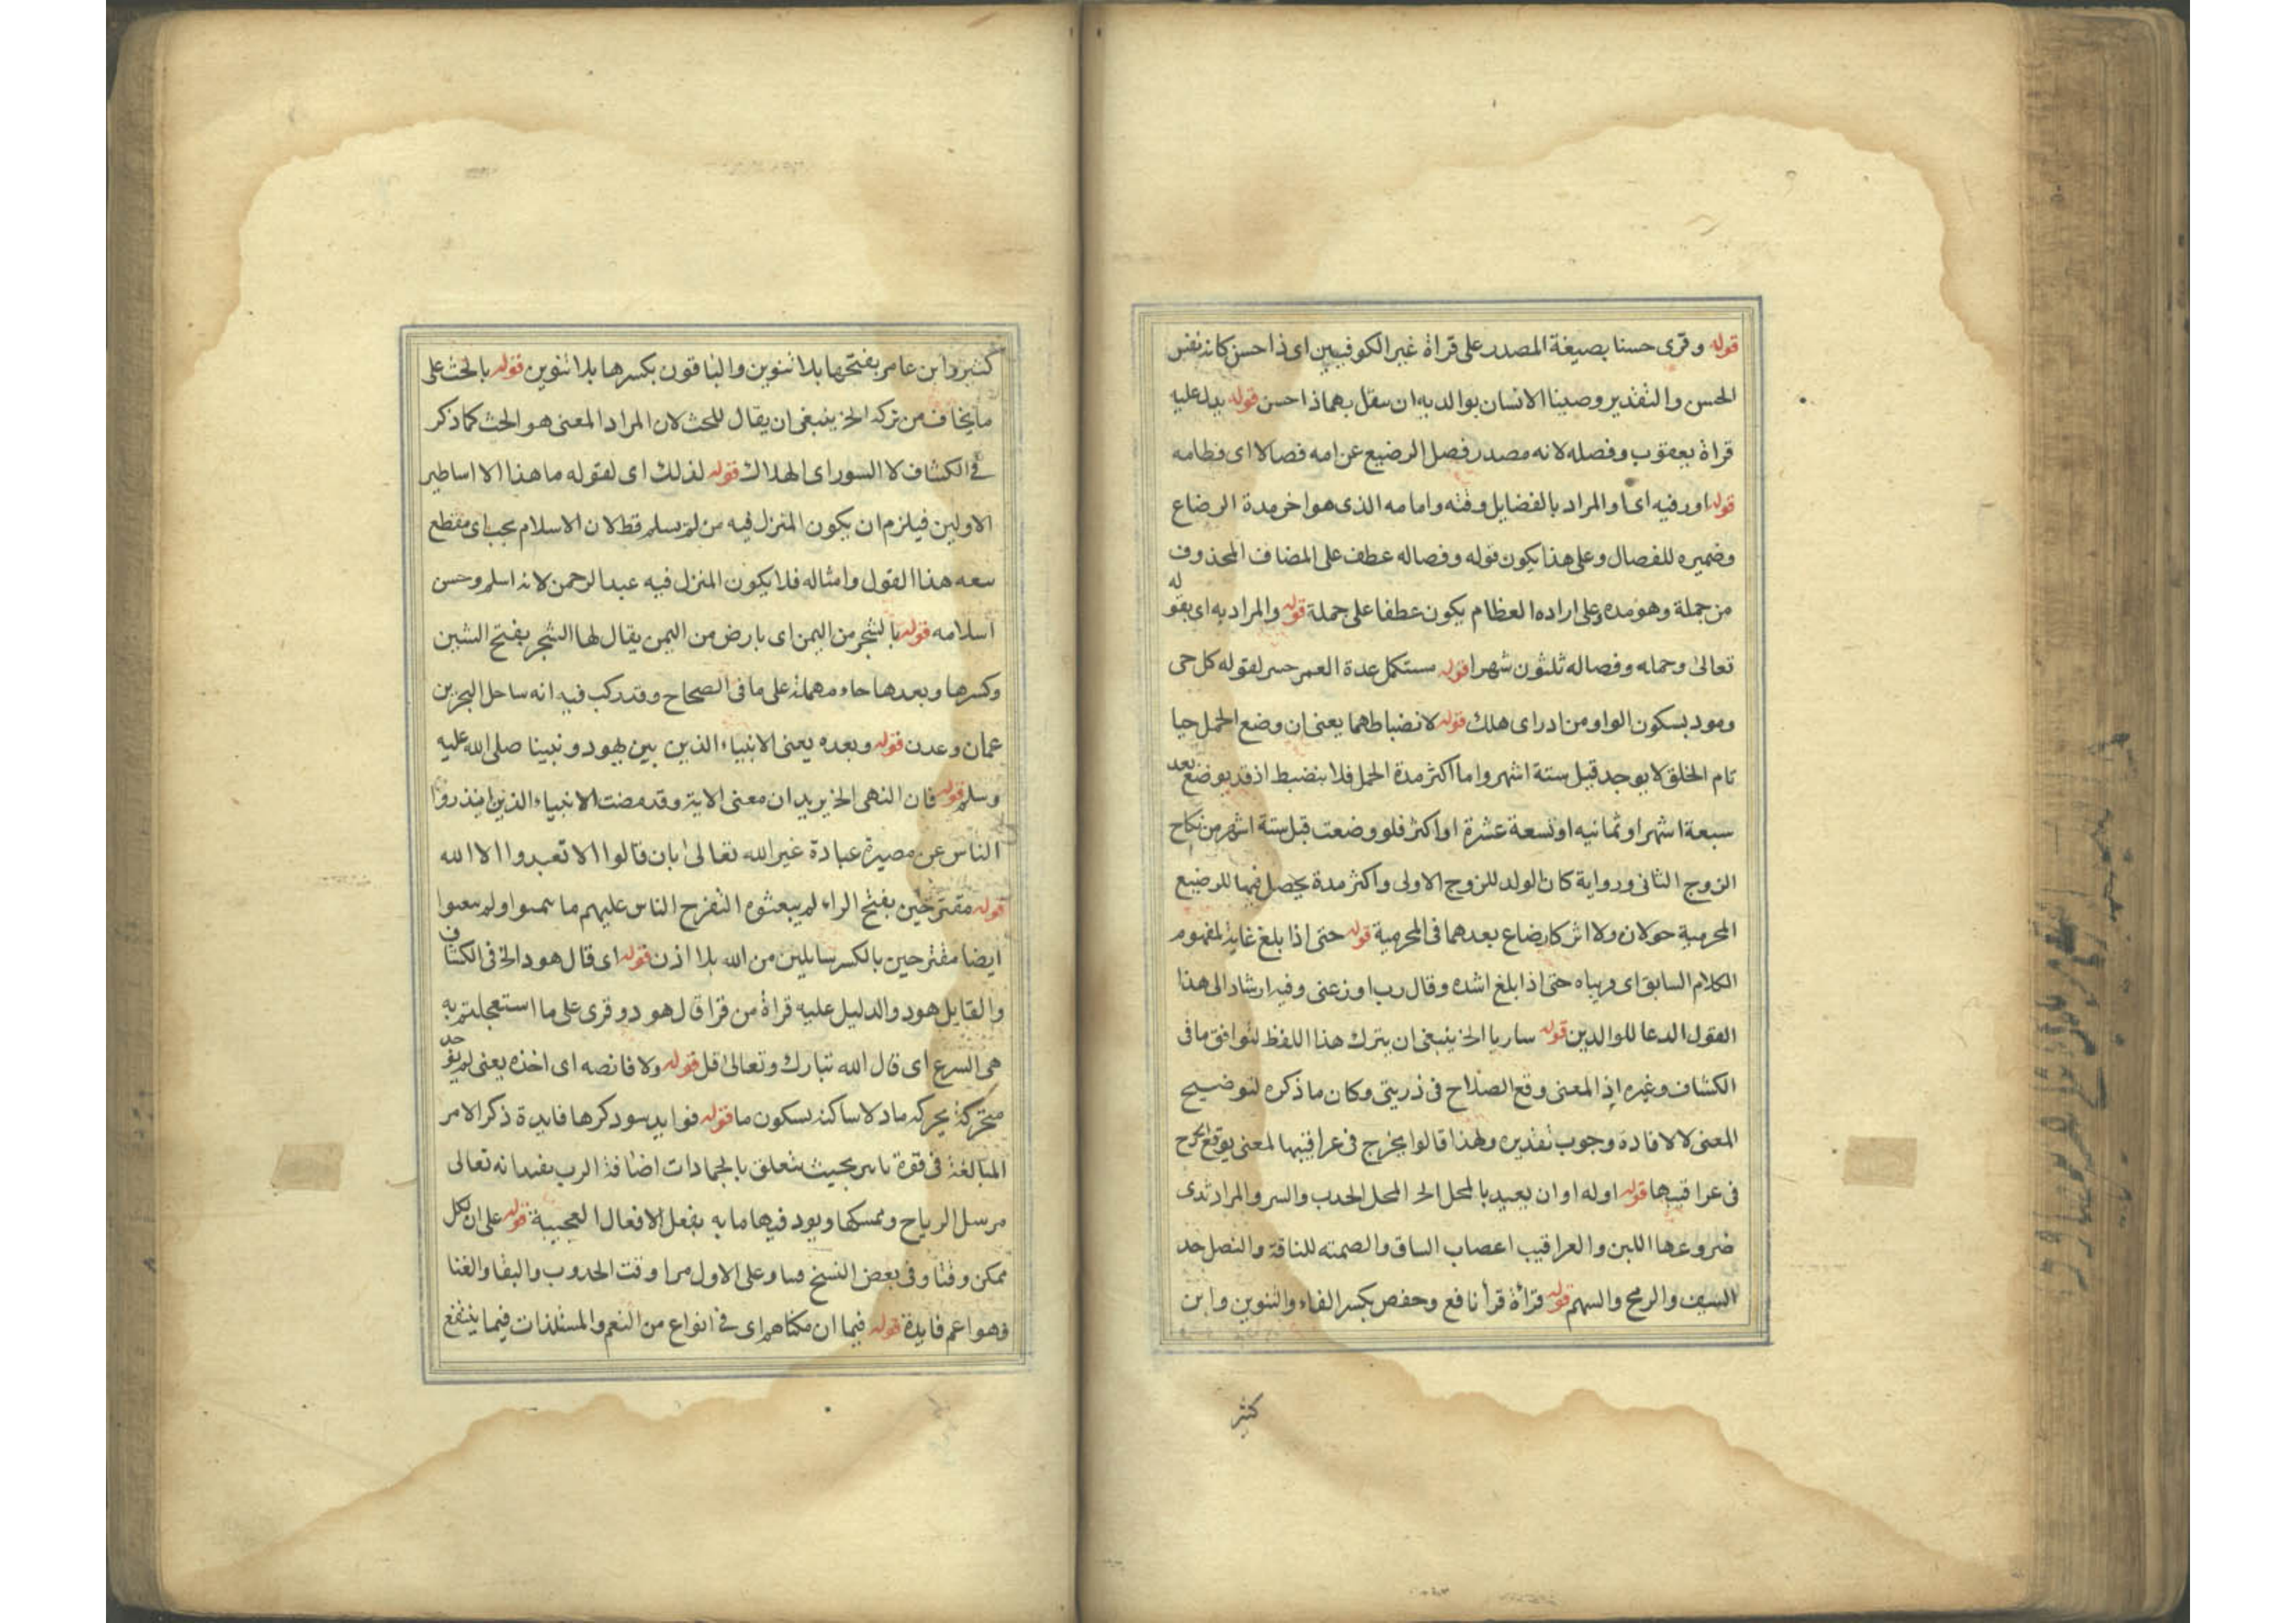 قوله وقرى حسنا بصيغة المصدر على قراة غير الكوفيين اى ذا حسن كانه نفس
الحسن والتقدير وصينا الانسان بوالديه ان يفعل بهما ذا حسن قوله يدل عليه
قراة يعقوب وفصله لانه مصدر فصل الرضيع عن امه فصالا اى فطامه
قوله او رفيه اى او المراد بالفضايل وقته وامامه الذى هو اخر مدة الرضاع
وضميره للفصال وعلى هذا يكون قوله وفصاله عطف على المضاف المحذوف
من جملة وهو مده وعلى اراده العظام يكون عطفا على حملة قوله والمراد به اى بقوله
تعالى وحمله وفصاله ثلثون شهرا قوله مستكمل عدة العمر لقوله كل حى
ومود بسكون الواو من ادراى هلك قوله لانضباطهما يعنى ان وضع الحمل حيا
تام الخلق لا يوجد قبل ستة اشهر واما اكثر مدة الحمل فلا ينضبط اذ قد يوضع بعد
سبعة اشهر او ثمانيه او تسعة عشرة او اكثر فلو وضعت قبل ستة اشهر من نكاح
الزوج الثانى ورواية كان الولد للزوج الاولى واكثر مدة يحصل فيها للرضيع
المحرمية حولان ولا اثر كارضاع بعدهما فى المحرمية قوله حتى اذا بلغ غاية لمفهوم
الكلام السابق اى ورباه حتى اذا بلغ اشده وقال رب اوزعنى وفيه ارشاد الى هذا
القول الدعا للوالدين قوله ساريا الخ ينبغى ان يترك هذا اللفظ لتوافق ما فى
الكشاف وغيره اذ المعنى وقع الصلاح فى ذريتى وكان ما ذكره لتوضيح
المعنى لا لافادة وجوب تقديره ولهذا قالوا يخرج فى عراقيبها لمعنى يوقع الجرح
فى عراقيبها قوله اوله او ان يعيد بالمحل الخ المحل الجدب والسر والمراد ثدى
ضروعها اللبن والعراقيب اعصاب الساق والصمته للناقة والنصل حد
السيف والرمح والسهم قوله قراة قرأ نافع وحفص بكسر الفاء والتنوين وابن
كثير
كثير وابن عامر بفتحها بلا تنوين والباقون بكسرها بلا تنوين قوله بالحث على
ما يخاف من تركه الخ ينبغى ان يقال للحث لان المراد المعنى هو الحث كما ذكر
فى الكشاف لا السور اى الهلاك قوله لذلك اى لقوله ما هذا الا اساطير
الاولين فيلزم ان يكون المنزل فيه من لم يسلم قط لان الاسلام يجب اى يقطع
سعه هذا القول وامثاله فلا يكون المنزل فيه عبد الرحمن لانه اسلم وحسن
اسلامه قوله بالشجر من اليمن اى بارض من اليمن يقال لها الشجر بفتح الشين
وكسرها وبعدها حاء مهملة على ما فى الصحاح وقد ركب فيه انه ساحل البحر بن
عمان وعدن قوله وبعده يعنى الانبياء الذين بين يهود ونبينا صلى الله عليه
وسلم قوله فان النهى الخ يريد ان معنى الاية وقد مضت الانبياء الذين انذروا
الناس عن مصيرة عبادة غير الله تعالى بان قالوا الا تعبدوا الا الله
قوله مقترحين بفتح الراء لم يبعثوه التفرح الناس عليهم ما سموا ولم يبعثوا
ايضا مقترحين بالكسر سايلين من الله بلا اذن قوله اى قال هود الخ فى الكشاف
والقايل هود والدليل عليه قراة من قرا قال هود وقرى على ما استعجلتم به
هى السرع اى قال الله تبارك وتعالى قل قوله ولا فانصه اى اخذه يعنى لم يوجد
متحركة يحركه ماد لا ساكنة بسكون ما قوله فوايد سود كرها فايدة ذكر الامر
المبالغة فى قوة ناس بحيث يتعلق بالجمادات اضافة الرب يفيد انه تعالى
مرسل الرياح وممسكها ويود فيها ما به يفعل الافعال العجيبة قوله على ان لكل
ممكن وقتا وفى بعض النسخ وعلى الاول مرا وقت الحدوب والبقا والغنا
وهو اعم فايدة قوله فيما ان مكناهم اى فى انواع من النعم والمستلذات فيما ينتفع